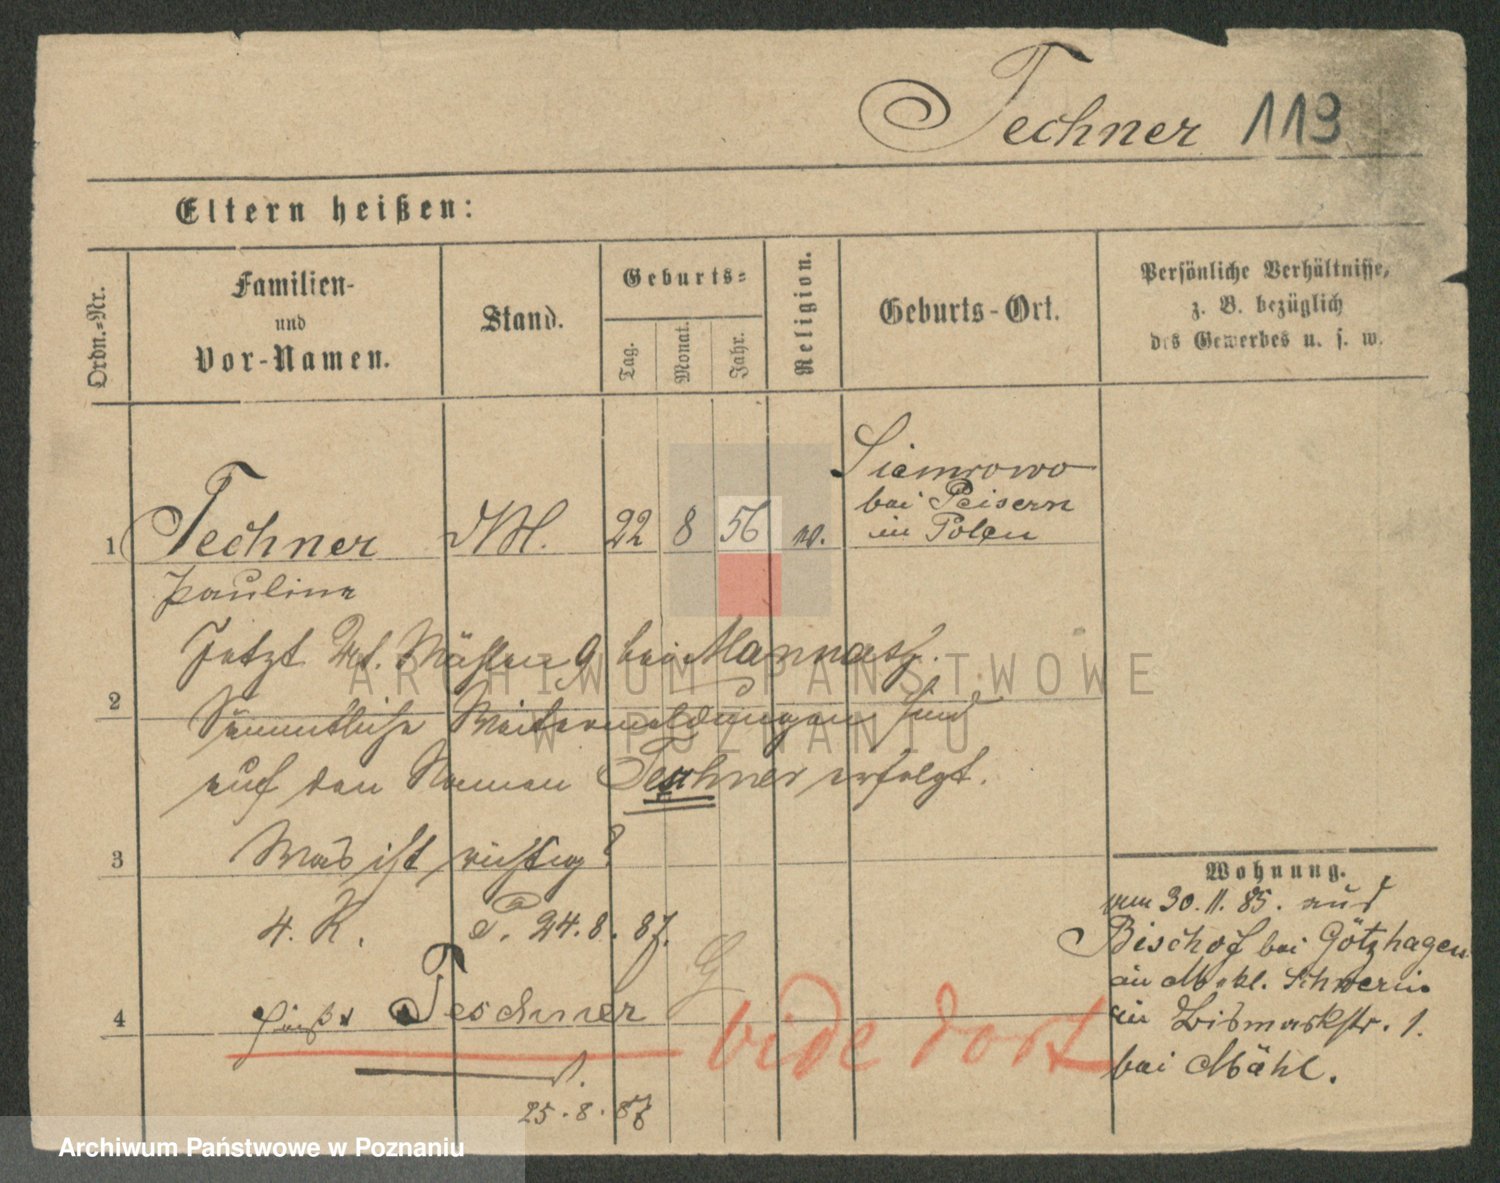 Techner 119
Eltern heißen:
Ordn.-Nr.
Familien-
und
Vor-Namen.
Stand.
Geburts-
Tag.
Monat.
Jahr.
Religion.
Geburts-Ort.
Persönliche Verhältnisse,
z. B. bezüglich
des Gewerbes u. s. w.
1 Techner
22 8 56
Siemrowo
bei Peisern
in Polen
Pauline
Jetzt 9 bei
ARCHIWUM PAŃSTWOWE
W POZNANIU
2
Sämmtliche Weitermeldungen sind
auf den Namen Techner erfolgt.
3 Was ist richtig?
4. K. P. 24.8.87.
4 heißt Teschner
vide dort
25.8.87
Wohnung.
am 30.11.85. aus
Bischof bei Götzhagen
in Mekl. Schwerin
in Bismarkstr. 1.
bei Mähl.
Archiwum Państwowe w Poznaniu